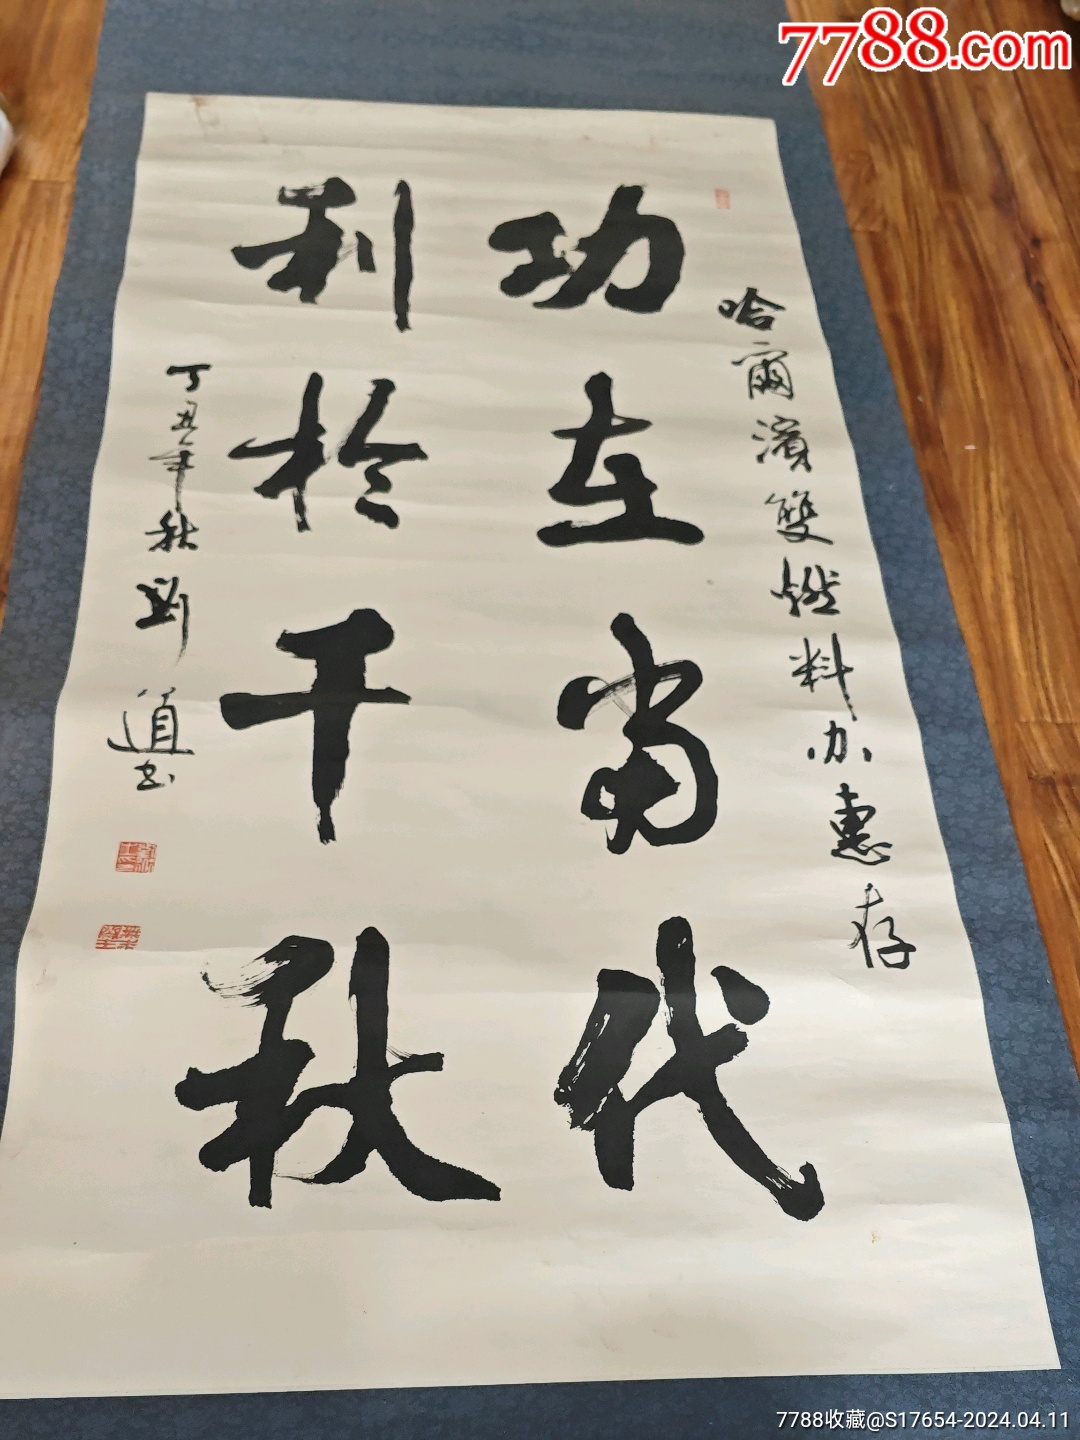 7788.com
哈爾濱雙燃料办惠存
功在當代
利於千秋
丁丑年秋劉道书
7788收藏@S17654-2024.04.11